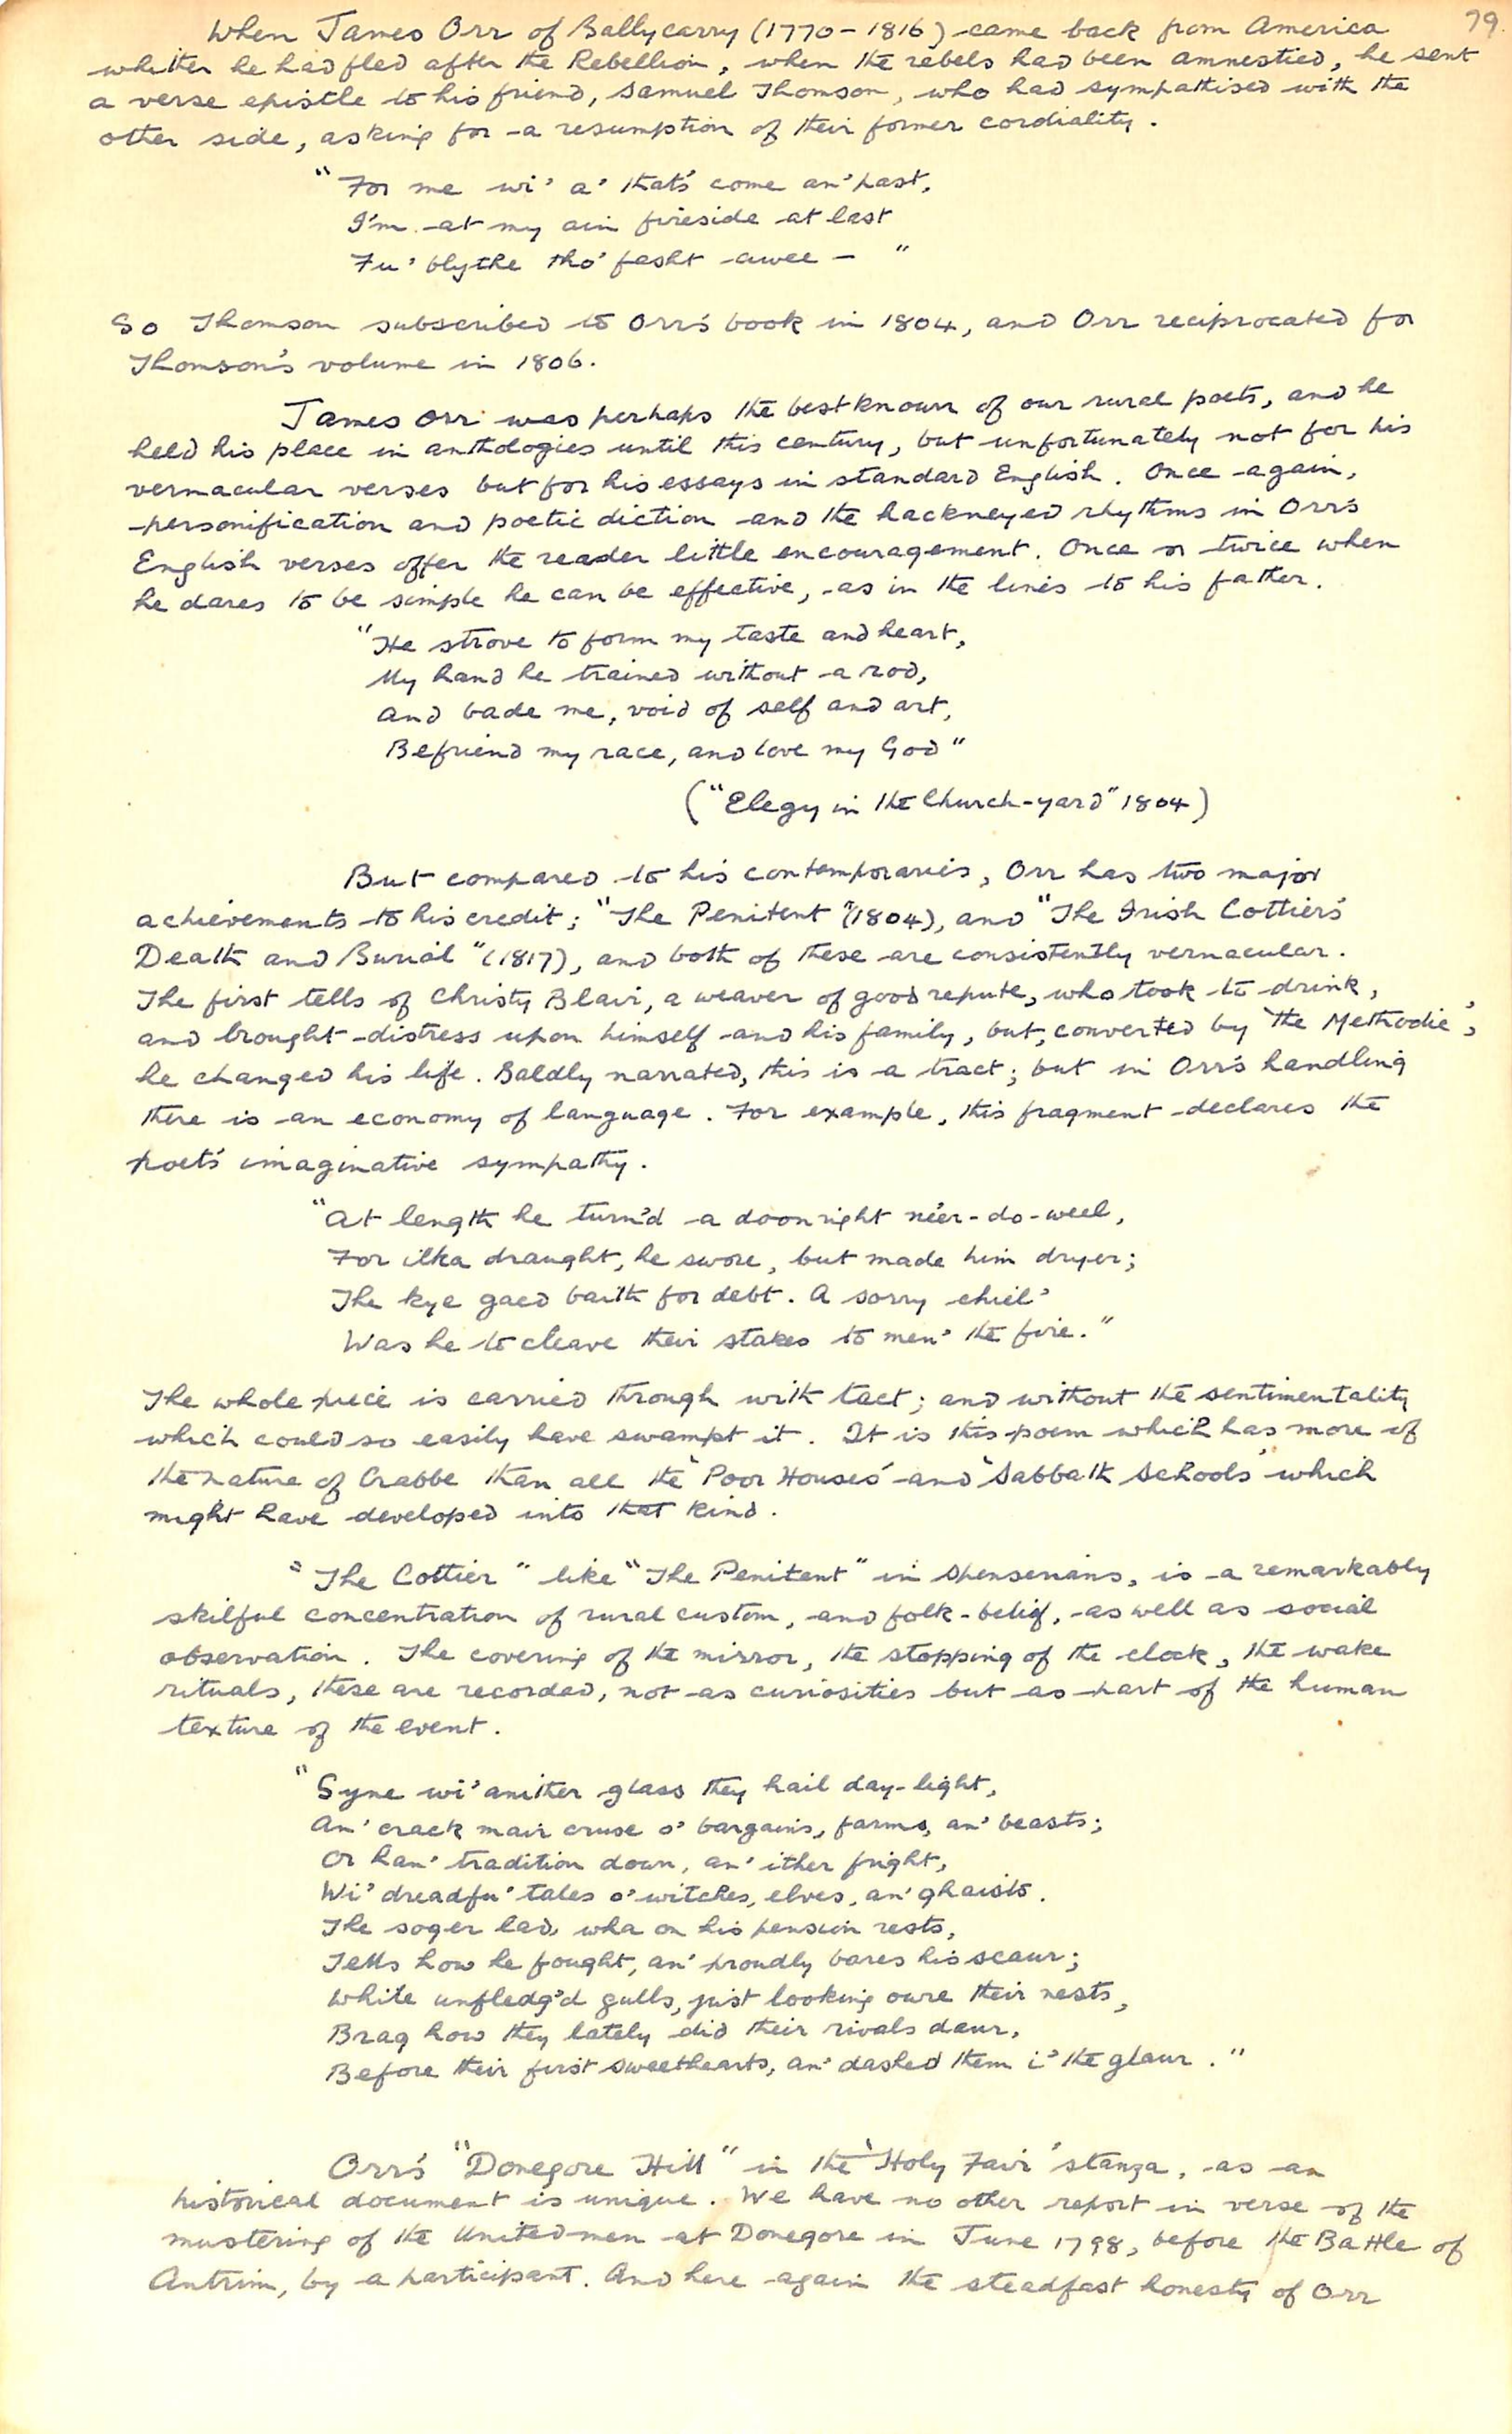 79.
When James Orr of Ballycarry (1770-1816) came back from America
whither he had fled after the Rebellion, when the rebels had been amnestied, he sent
a verse epistle to his friend, Samuel Thomson, who had sympathised with the
other side, asking for a resumption of their former cordiality.
"For me wi' a' that's come an' past,
I'm at my ain fireside at last
Fu' blythe tho' fasht awee - "
So Thomson subscribed to Orr's book in 1804, and Orr reciprocated for
Thomson's volume in 1806.
James Orr was perhaps the best known of our rural poets, and he
held his place in anthologies until this century, but unfortunately not for his
vernacular verses but for his essays in standard English. Once again,
personification and poetic diction and the hackneyed rhythms in Orr's
English verses offer the reader little encouragement. Once or twice when
he dares to be simple he can be effective, as in the lines to his father.
"He strove to form my taste and heart,
My hand he trained without a rod,
And bade me, void of self and art,
Befriend my race, and love my God"
("Elegy in the Church-yard" 1804)
But compared to his contemporaries, Orr has two major
achievements to his credit; "The Penitent" (1804), and "The Irish Cottier's
Death and Burial" (1817), and both of these are consistently vernacular.
The first tells of Christy Blair, a weaver of good repute, who took to drink,
and brought distress upon himself and his family, but, converted by 'the Methodie',
he changed his life. Baldly narrated, this is a tract; but in Orr's handling
there is an economy of language. For example, this fragment declares the
poet's imaginative sympathy.
"At length he turn'd a doonright ne'er-do-weel,
For ilka draught, he swore, but made him dryer;
The kye gaed baith for debt. A sorry chiel'
Was he to cleave their stakes to men' the fire."
The whole piece is carried through with tact; and without the sentimentality
which could so easily have swampt it. It is this poem which has more of
the nature of Crabbe than all the 'Poor Houses' and 'Sabbath Schools' which
might have developed into that kind.
"The Cottier" like "The Penitent" in Spenserians, is a remarkably
skilful concentration of rural custom, and folk-belief, as well as social
observation. The covering of the mirror, the stopping of the clock, the wake
rituals, these are recorded, not as curiosities but as part of the human
texture of the event.
"Syne wi' anither glass they hail day-light,
An' crack mair cruse o' bargains, farms, an' beasts;
Or han' tradition down, an' ither fright,
Wi' dreadfu' tales o' witches, elves, an' ghaists.
The soger lad, wha on his pension rests,
Tells how he fought, an' proudly bares his scaur;
While unfledg'd gulls, just looking owre their nests,
Brag how they lately did their rivals daur,
Before their first sweethearts, an' dashed them i' the glaur."
Orr's "Donegore Hill" in the 'Holy Fair' stanza, as an
historical document is unique. We have no other report in verse of the
mustering of the United men at Donegore in June 1798, before the Battle of
Antrim, by a participant. And here again the steadfast honesty of Orr